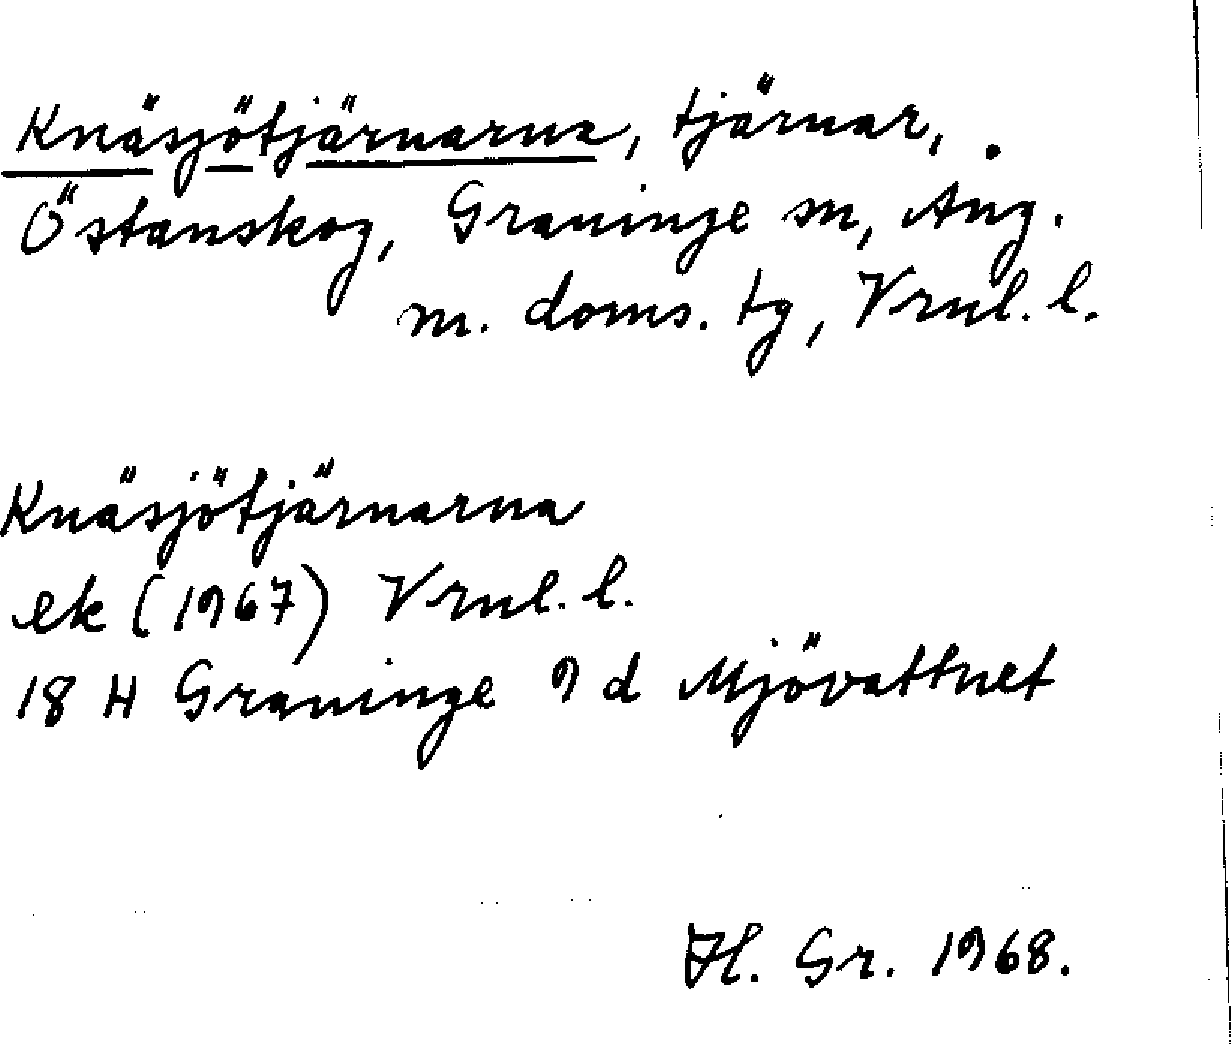 Knäsjötjärnarna, tjärnar,
Östanskog, Graninge sn, Ång.
m. doms. tg, Vrnl. l.
Knäsjötjärnarna
ek (1967) Vrnl. l.
18 H Graninge 9 d Mjövattnet
Hl. Gr. 1968.